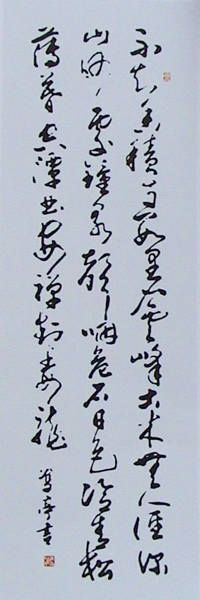 不知香積寺數里入雲峰古木無人徑深
山何處鐘泉聲咽危石日色冷青松
薄暮空潭曲安禪制毒龍
亭書